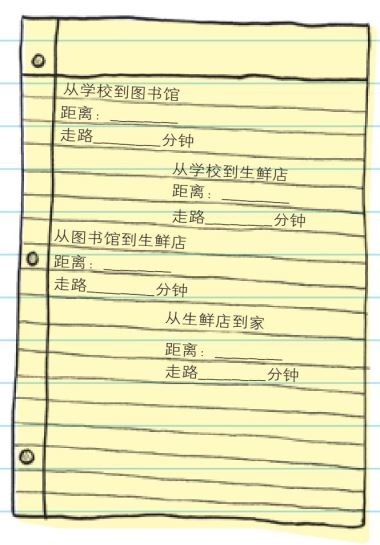 从学校到图书馆
距离：________
走路________分钟
从学校到生鲜店
距离：________
走路________分钟
从图书馆到生鲜店
距离：________
走路________分钟
从生鲜店到家
距离：________
走路________分钟